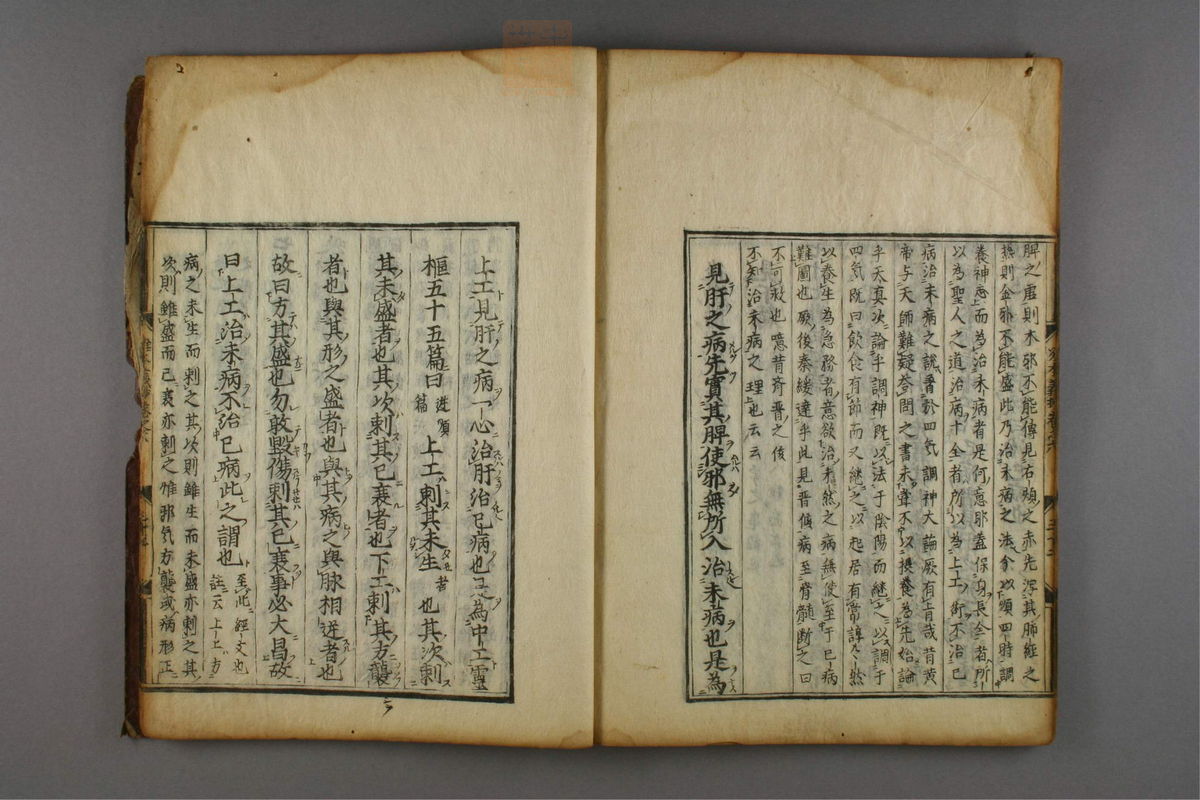 脾之虚則木邪不能傳見右頰之赤先瀉其肺經之
熱則金邪不能盛此乃治未病之法令以順四時調
養神志而為治未病者是何意邪蓋保身長全者所
以為聖人之道治病十全者所以為上工術不治已
病治未病之說著於四気調神大論厥有旨哉昔黄
帝与天師難疑答問之書未嘗不以摂養為先始論
乎天真次論乎調神既以法于陰陽而継之以調于
四気既曰飲食有節而又継之以起居有常諄々然
以養生為急務者意欲治未然之病無使至于已病
難圖也厥後秦緩達乎此見晋侯病至膏髓断之曰
不可救也噫昔斉晋之侯
不知治未病之理也云云
見肝之病先實其脾使邪無所入治未病也是為
上工見肝之病一心治肝治已病也是為中工靈
樞五十五篇曰逆順篇上工刺其未生者也其次刺
其未盛者也其次刺其已衰者也下工刺其方襲
者也與其形之盛者也與其病之與脉相逆者也
故曰方其盛也勿敢毀傷刺其已衰事必大昌故
曰上工治未病不治已病此之謂也至此經文也註云上工方
病之未生而刺之其次則雖生而未盛亦刺之其
次則雖盛而已衰亦刺之惟邪気方襲或病形正